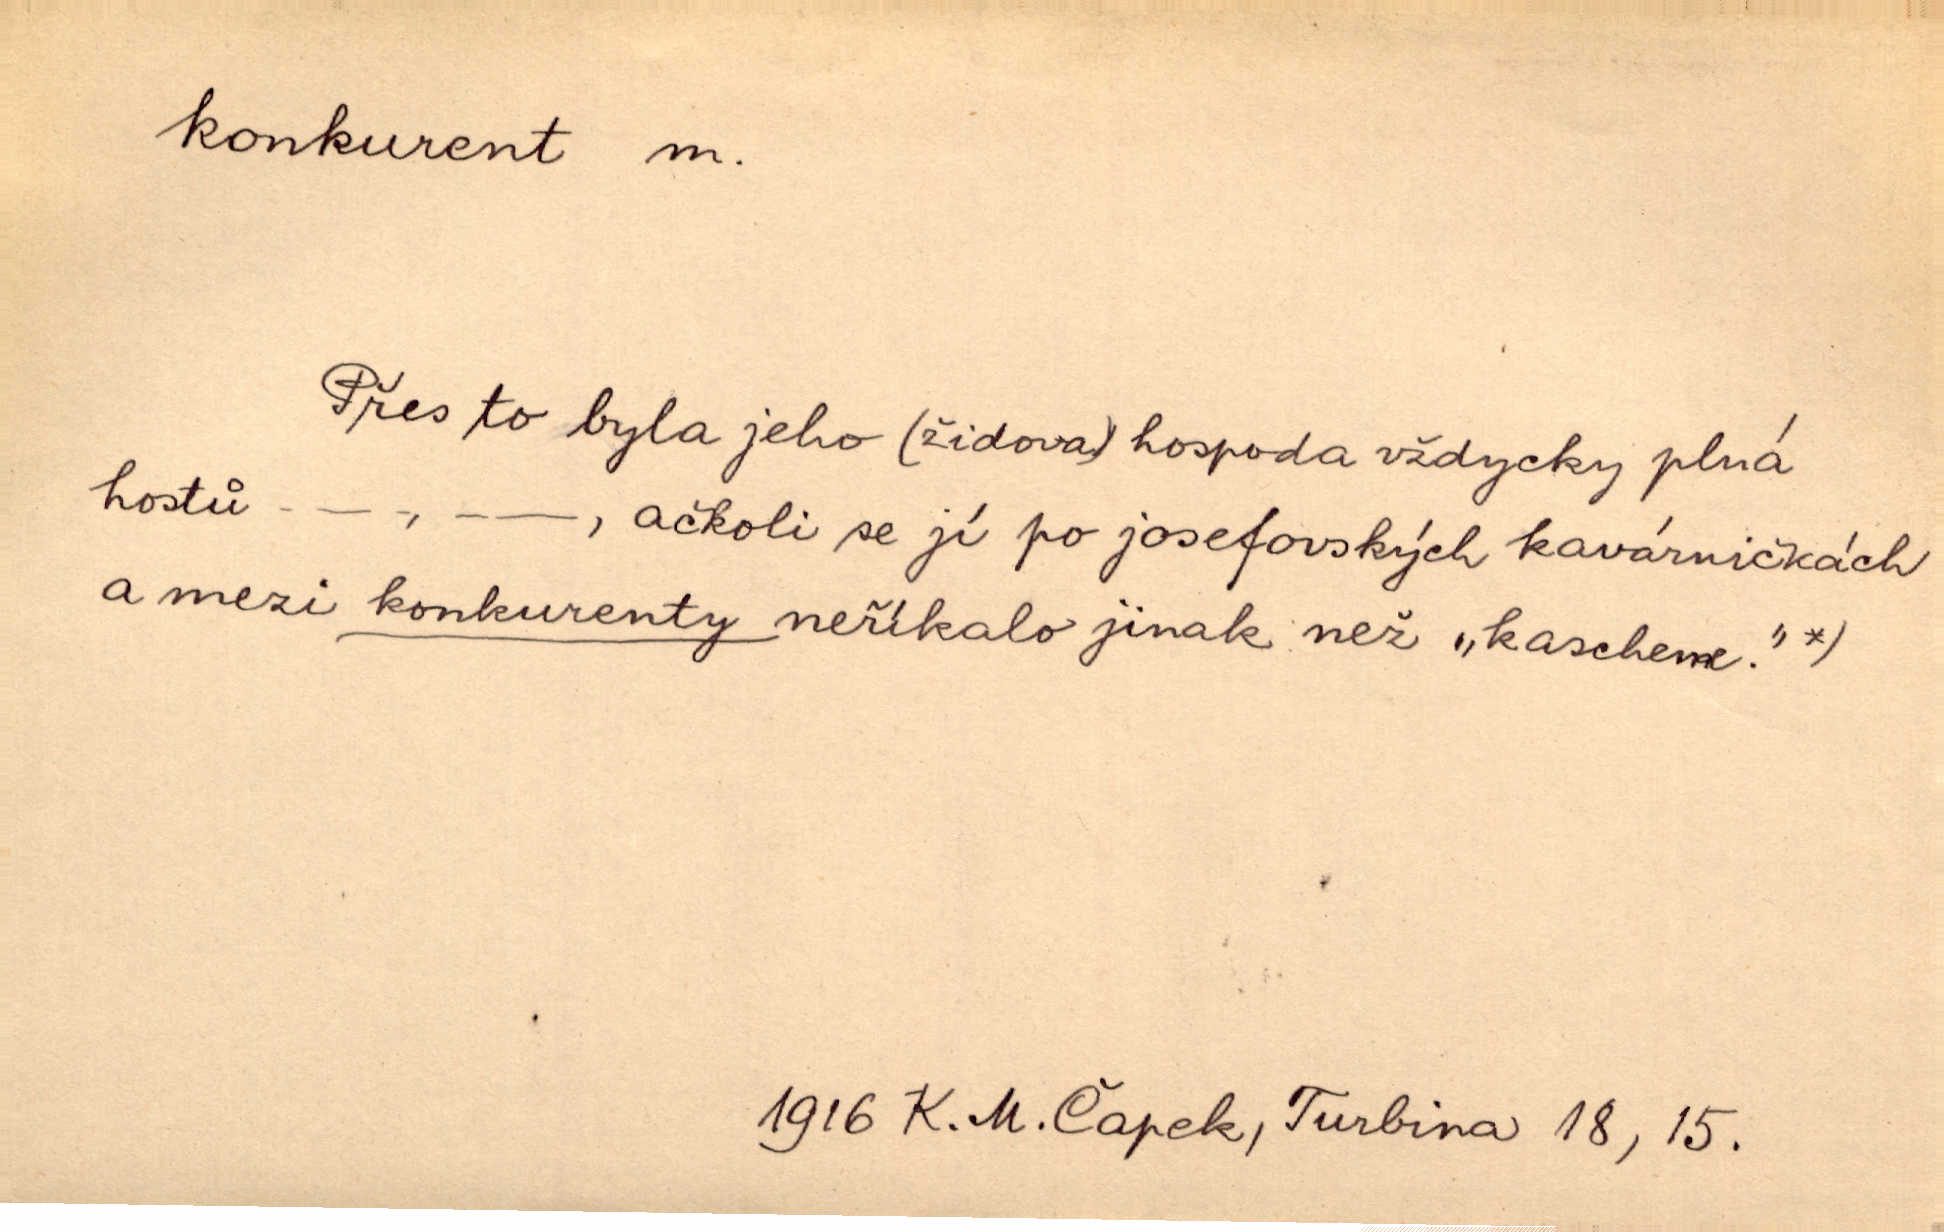 konkurent m.
Přes to byla jeho (židova) hospoda vždycky plná
hostů - — -, - —, ačkoli se jí po josefovských kavárničkách
a mezi konkurenty neříkalo jinak než „kascheme." *)
1916 K. M. Čapek, Turbina 18, 15.